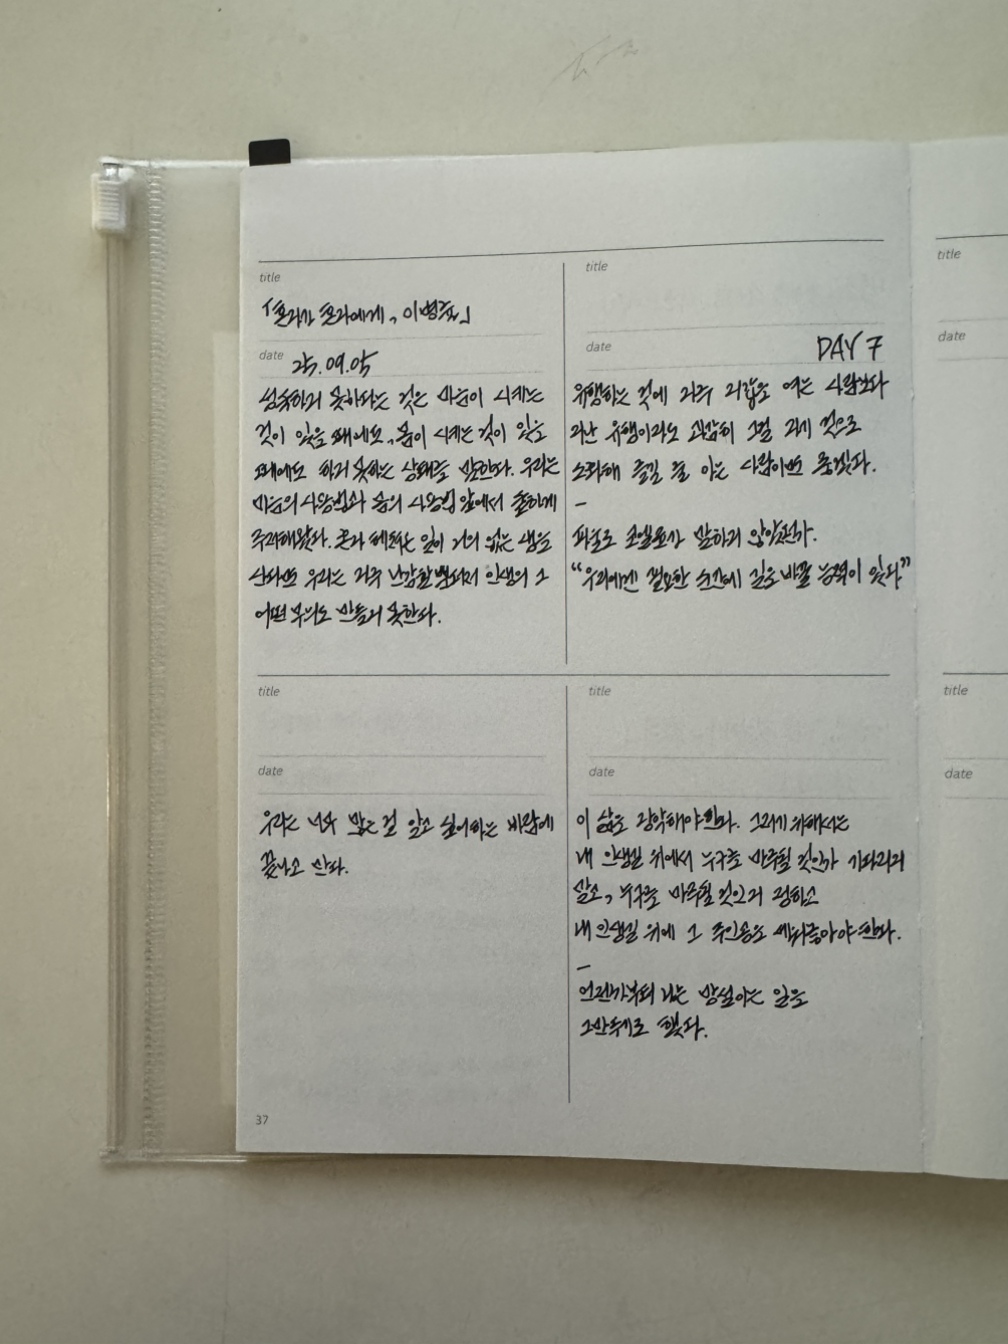 title
「혼자가 혼자에게, 이병률」
date 25.09.05
성숙하지 못하다는 것은 마음이 시키는
것이 있을 때에도, 몸이 시키는 것이 있을
때에도 하지 못하는 상태를 말한다. 우리는
마음의 사용법과 몸의 사용법 앞에서 출하게
주저해왔다. 혼자 해본 일이 거의 없는 생을
산다면 우리는 자주 난감할뿐더러 인생의 그
어떤 무늬도 만들지 못한다.
title
date
DAY 7
유행하는 것에 자주 지갑을 여는 사람보다
지난 유행이라도 과감히 그걸 자기 것으로
소화해 즐길 줄 아는 사람이면 좋겠다.
–
파울로 코엘료가 말하지 않았던가.
“우리에겐 필요한 순간에 길을 바꿀 능력이 있다”
title
date
우리는 너무 많은 걸 알고 싶어하는 바람에
끝나고 만다.
title
date
이 삶을 장악해야한다. 그러기 위해서는
내 인생길 위에서 누구를 마주칠 것인가 기다리지
말고, 누구를 마주칠 것인지 정하고
내 인생길 위에 그 주인공을 세워놓아야한다.
–
언젠가부터 나는 망설이는 일을
그만두기로 했다.
37
title
date
title
date